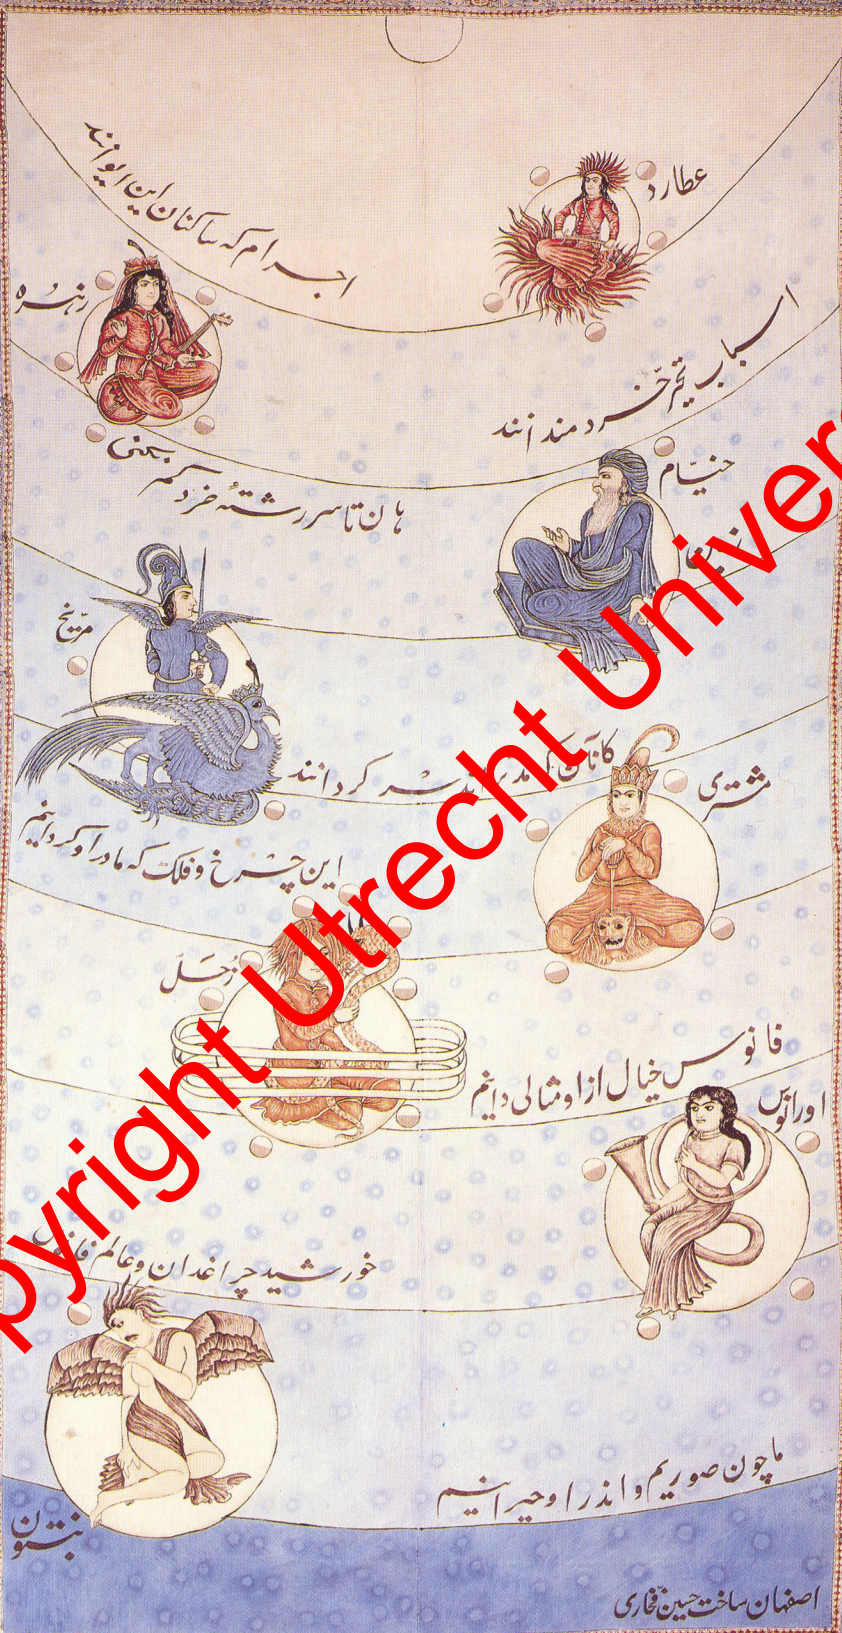 عطارد
اجرام که ساکنان این ایوانند
زهره
اسباب تحیر خردمندانند
خیام
زمین
هان تا سر رشتهٔ خرد گم نکنی
مریخ
کانان که مدبرند سرگردانند
مشتری
این چرخ و فلک که ما در او گردانیم
زحل
فانوس خیال از او مثالی دانیم
اورانوس
خورشید چراغدان و عالم فانوس
ما چون صوریم و اندر او حیرانیم
نپتون
اصفهان ساخت حسین فخاری
pyright Utrecht Univer